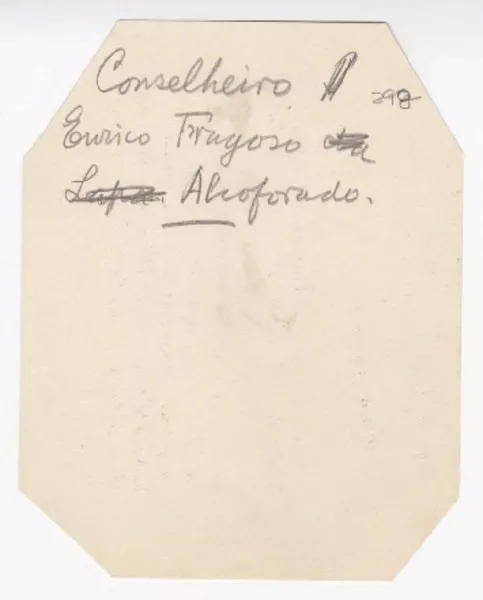 Conselheiro 298
Eurico Fragoso da
Lapa. Alcoforado.